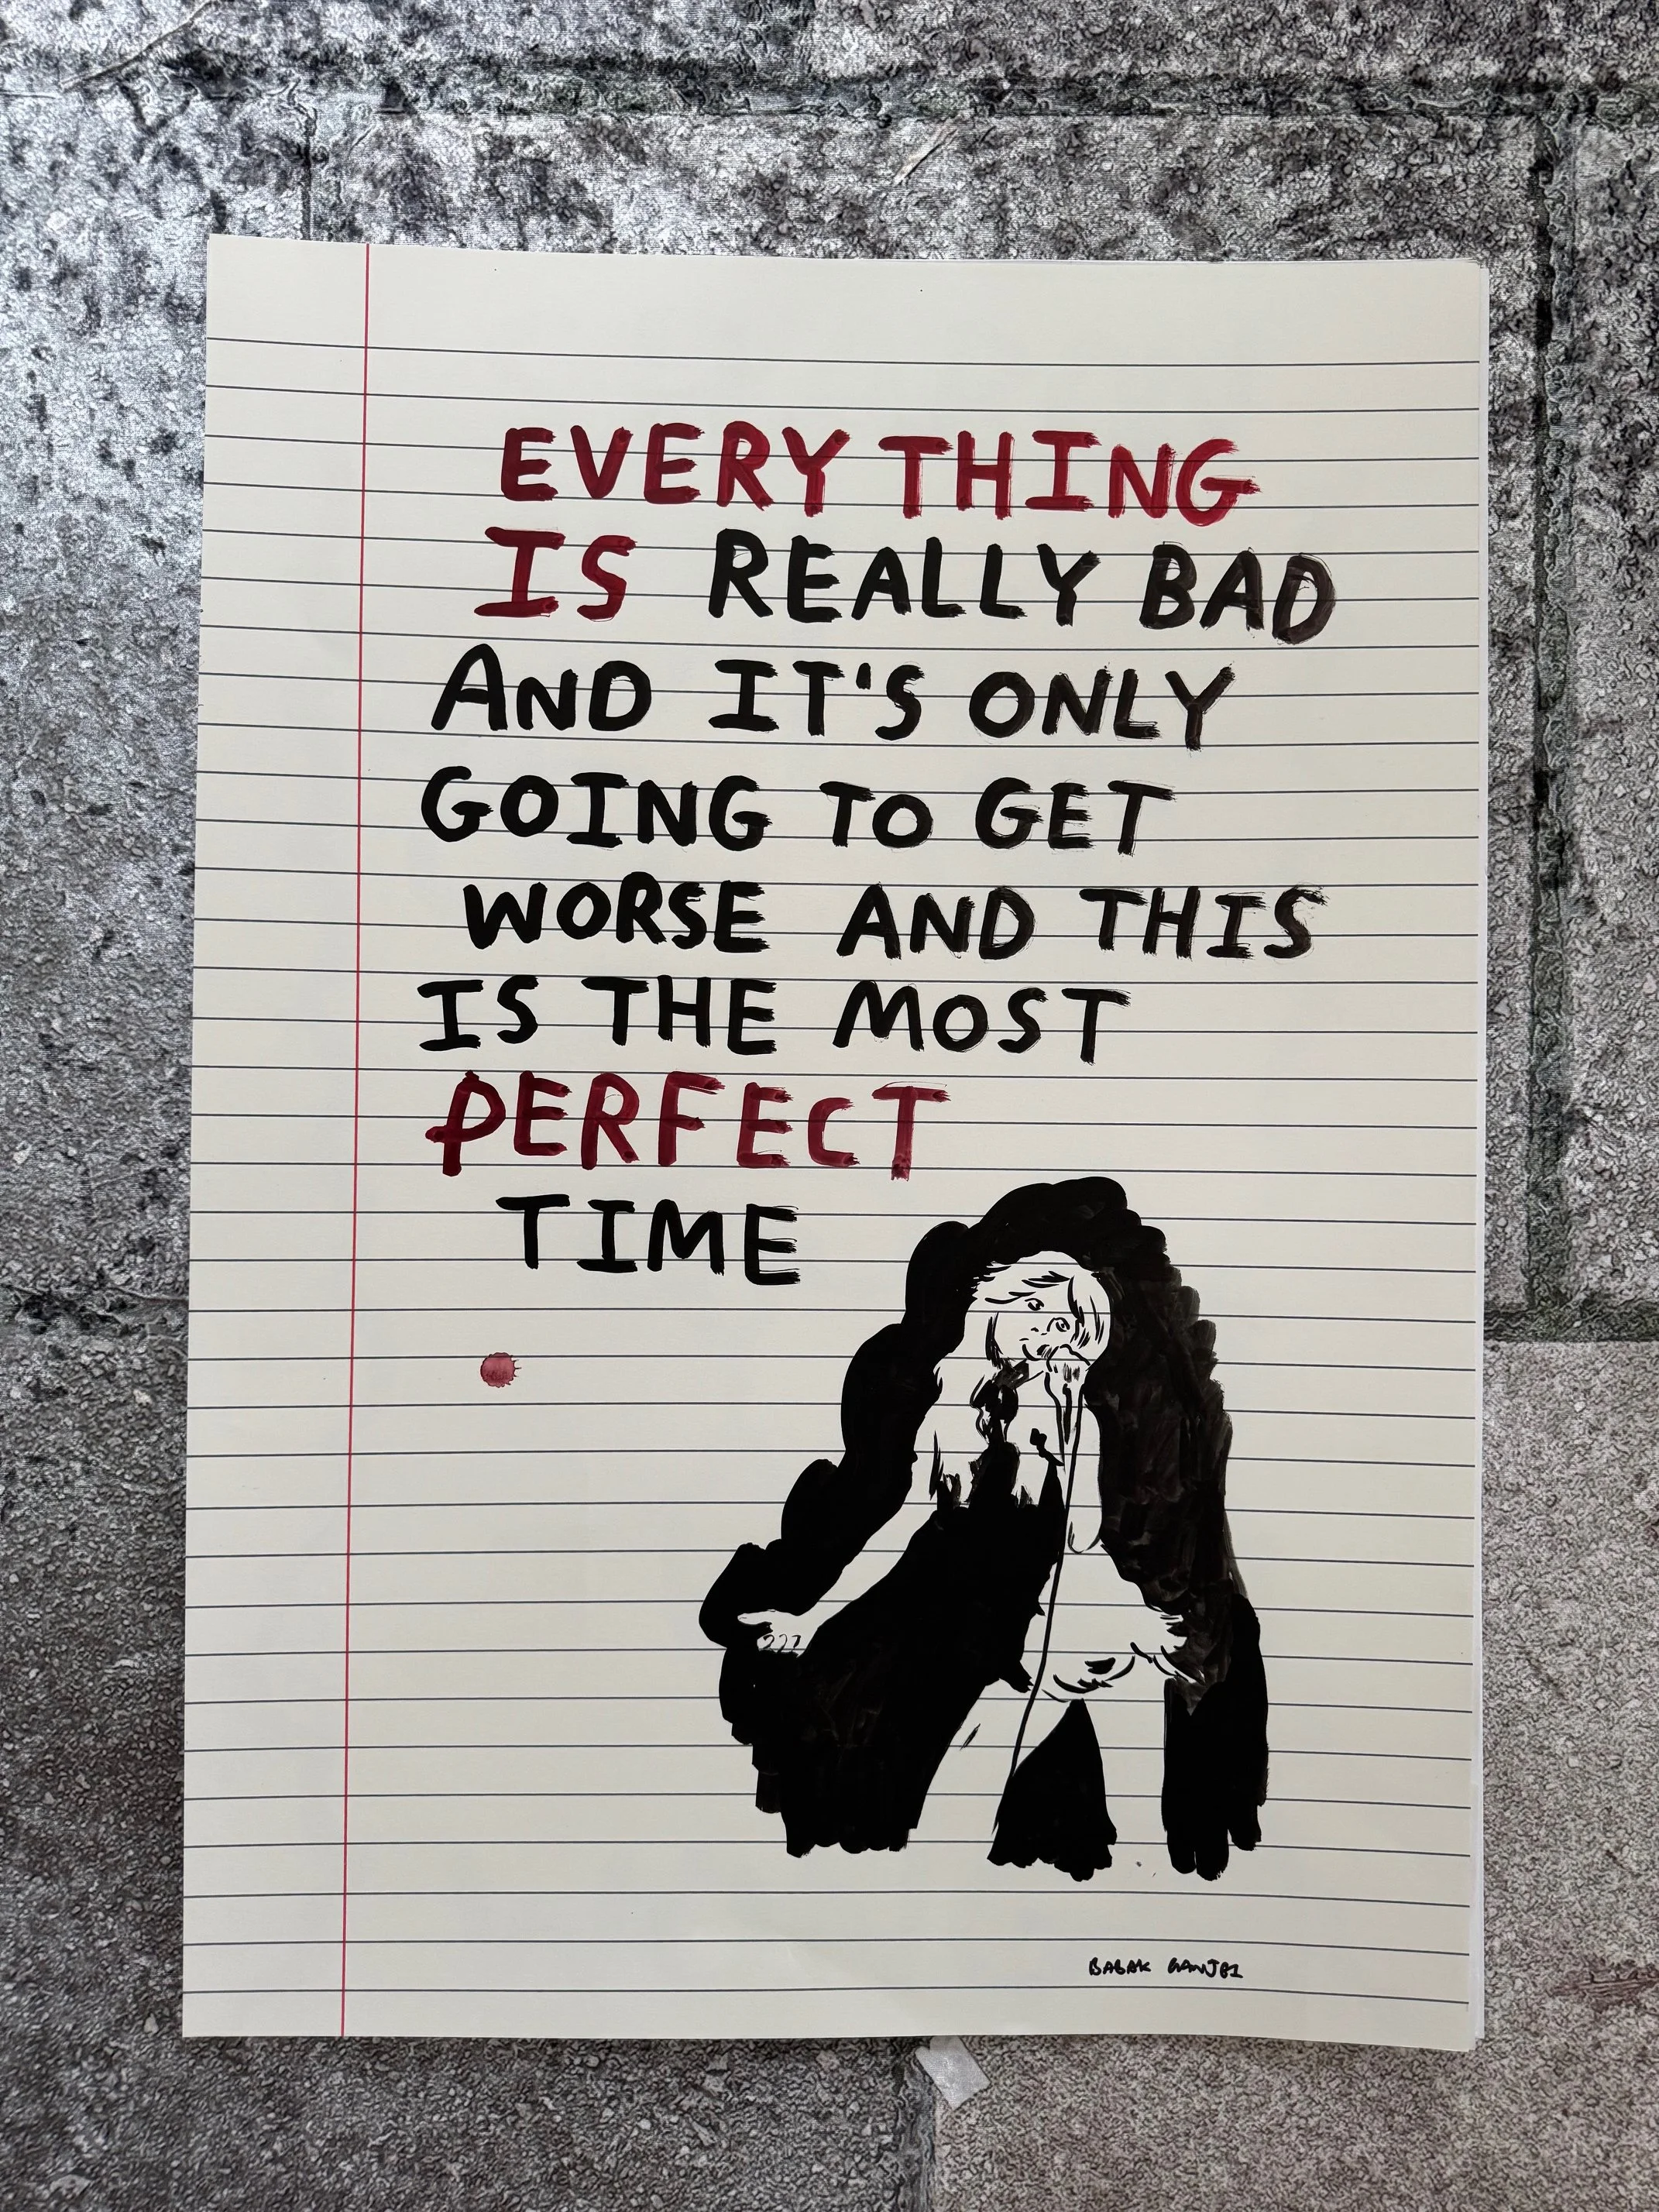 EVERY THING
IS REALLY BAD
AND IT'S ONLY
GOING TO GET
WORSE AND THIS
IS THE MOST
PERFECT
TIME
BABAK GANJEI